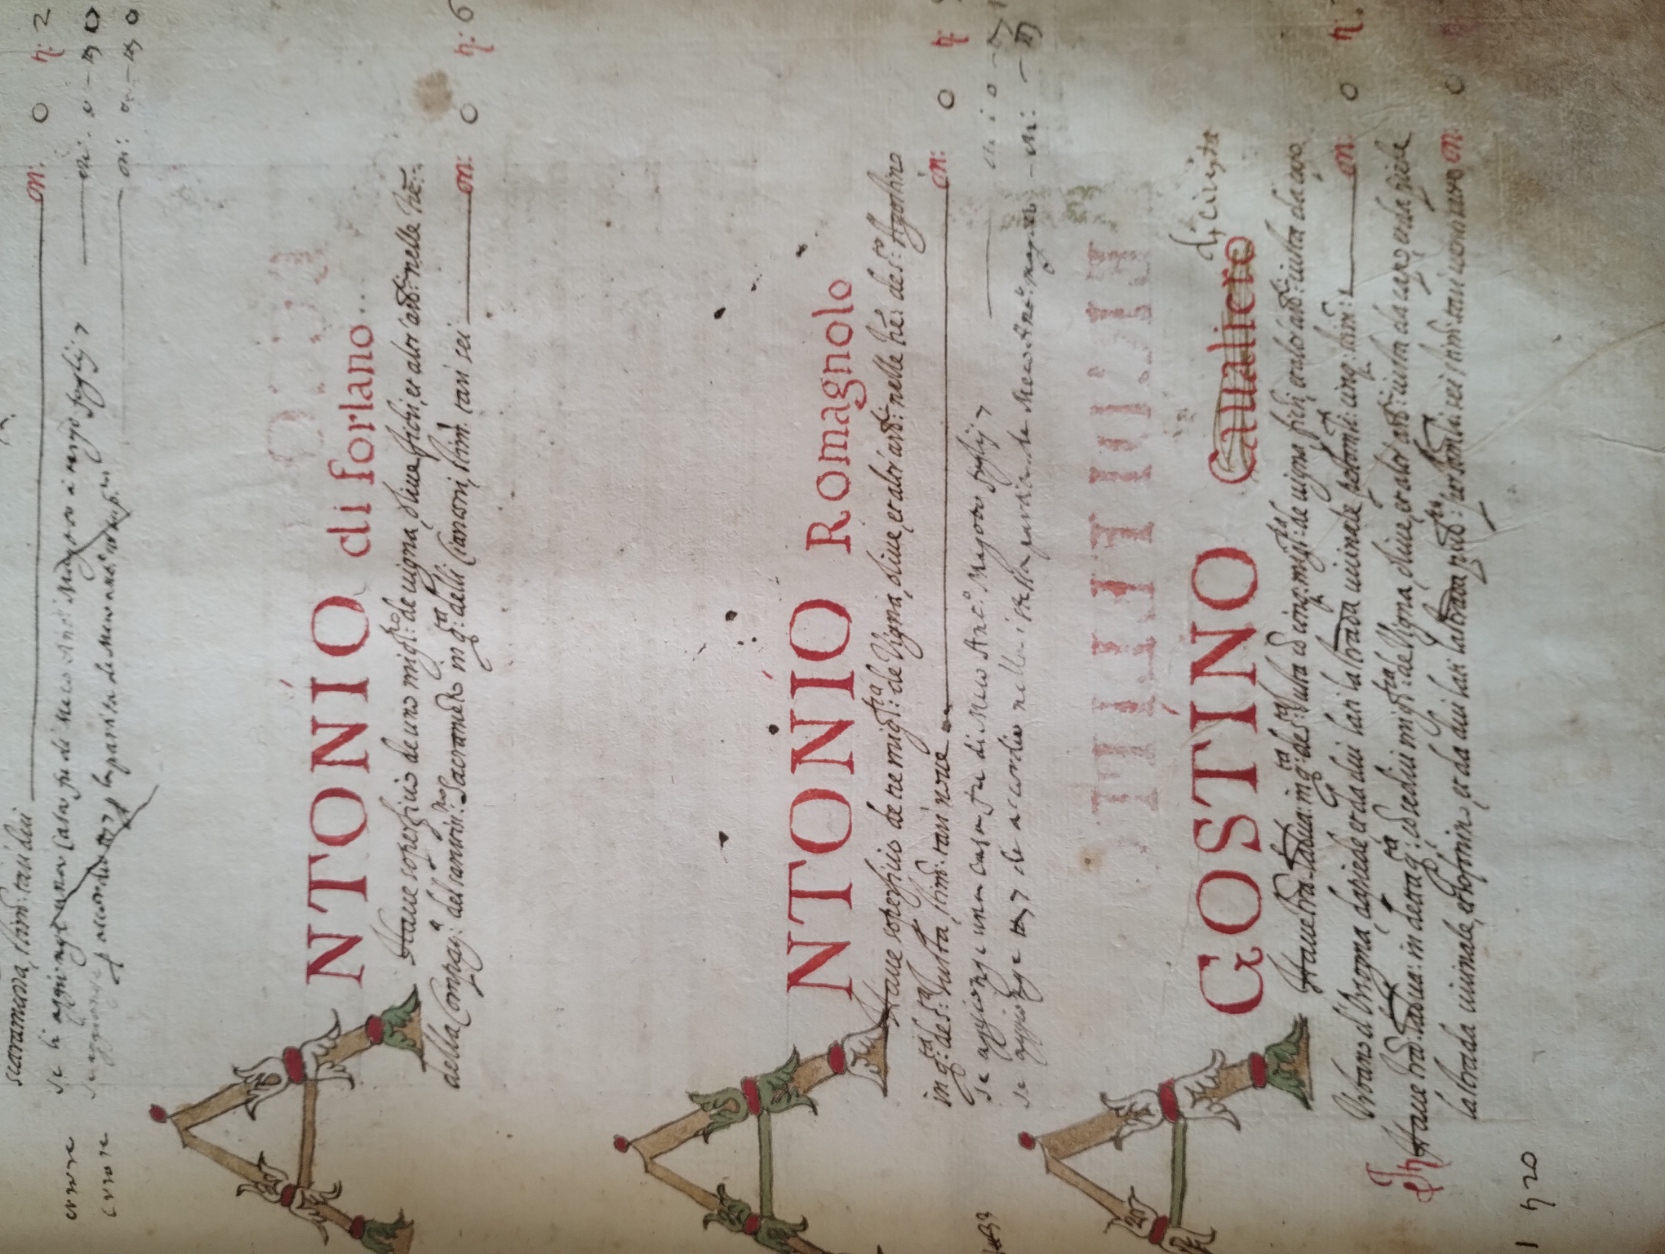 scaramuzza, stim: tari dui on: 0 tt: 2
errore se li aggionge una casa fu di Meco Ant.° Magoto a tergo foglij 7 on: 0 - tt
errore se aggionge p accordio p la partita de Meco ant.° on: 0 - tt 0
ANTONIO di forlano
Haue soperficio de uno migl.ro de uigna, oliue, fichi, et altr'arb: nelle
della Compag.a del santiss.mo Sacramento in q.ta delli Cianconi, stim: tari sei on: 0 tt: 6
ANTONIO Romagnolo
Haue soperficio de tre migl.ra de Vigna, oliue, et altr'arb: nelle de s.to Agostino
in q.ta de s.ta Iusta, stim: tari noue on: 0 tt:
se aggionge una casa fu di Meco Ant.° Magoto foglij 7
se aggionge tt 7 de accordio nella istessa partita de Meco Ant.° on:
AGOSTINO Caualiero di ciuita
Haue tra labua: in q.ta de s.ta Iusta cō cinq: migl.ra de uigna, fichi, et altr'arb: iusta da capo
Urbano d'Orsogna, da piede et da dui lati la strada uicinale per tomli: cinq: stim: on: 0 tt:
Itē Haue tra: labua: in detta q.ta cō sedici migl.ra de Vigna, oliue, et altr'arb: iusta da capo, et da piede
la strada uicinale, et lo finino, et da dui lati la strada pub.ca per tomli: sei stim: tari on: 0
1 tt 20